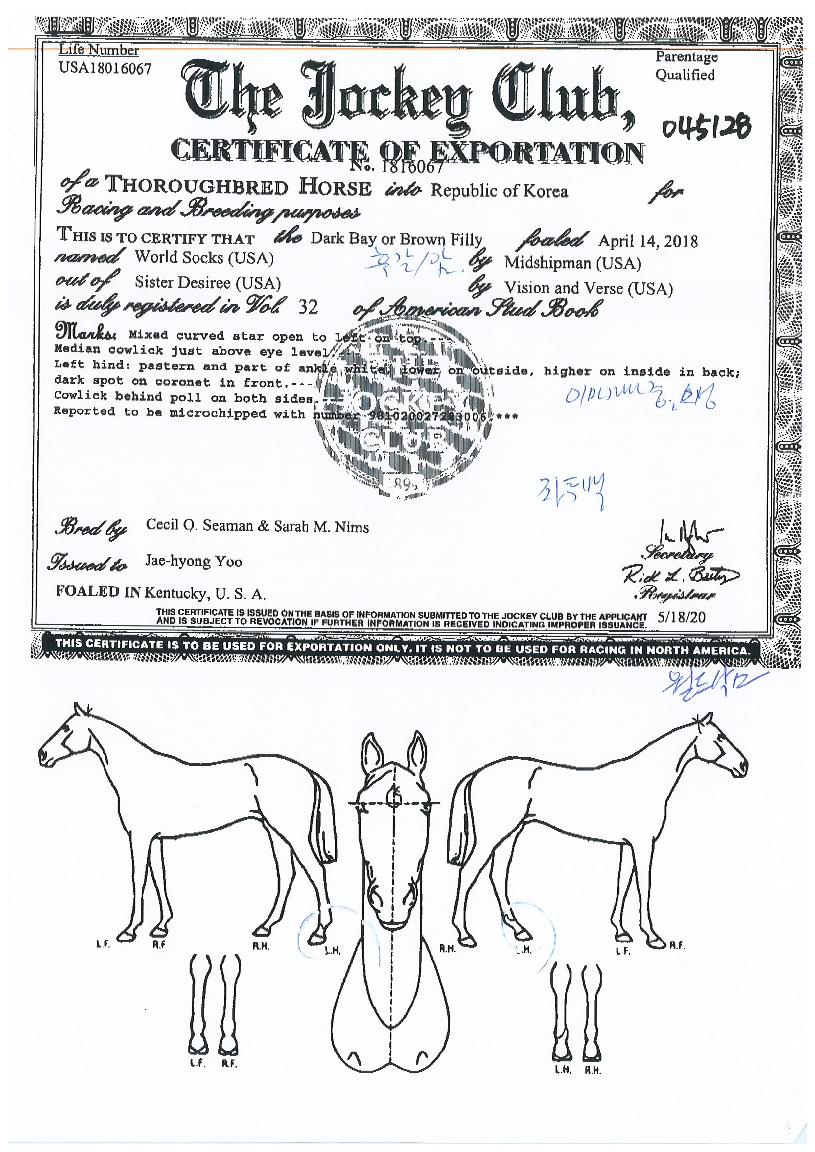 Life Number
USA18016067
Parentage
Qualified
The Jockey Club,
045128
CERTIFICATE OF EXPORTATION
No. 1816067
of a THOROUGHBRED HORSE into Republic of Korea for
Racing and Breeding purposes
THIS IS TO CERTIFY THAT the Dark Bay or Brown Filly foaled April 14, 2018
named World Socks (USA) by Midshipman (USA)
out of Sister Desiree (USA) by Vision and Verse (USA)
is duly registered in Vol. 32 of American Stud Book
Marks: Mixed curved star open to left on top.---
Median cowlick just above eye level.---
Left hind: pastern and part of ankle white, lower on outside, higher on inside in back;
dark spot on coronet in front.---
Cowlick behind poll on both sides.---
Reported to be microchipped with number 981020027283006.***
JOCKEY
CLUB
Bred by Cecil O. Seaman & Sarah M. Nims
Issued to Jae-hyong Yoo
FOALED IN Kentucky, U. S. A.
Secretary
Rick L. Bailey
Registrar
THIS CERTIFICATE IS ISSUED ON THE BASIS OF INFORMATION SUBMITTED TO THE JOCKEY CLUB BY THE APPLICANT
AND IS SUBJECT TO REVOCATION IF FURTHER INFORMATION IS RECEIVED INDICATING IMPROPER ISSUANCE.
5/18/20
THIS CERTIFICATE IS TO BE USED FOR EXPORTATION ONLY. IT IS NOT TO BE USED FOR RACING IN NORTH AMERICA.
월드삭스
L.F. R.F. R.H. L.H. R.H. L.H. L.F. R.F.
L.F. R.F. L.H. R.H.